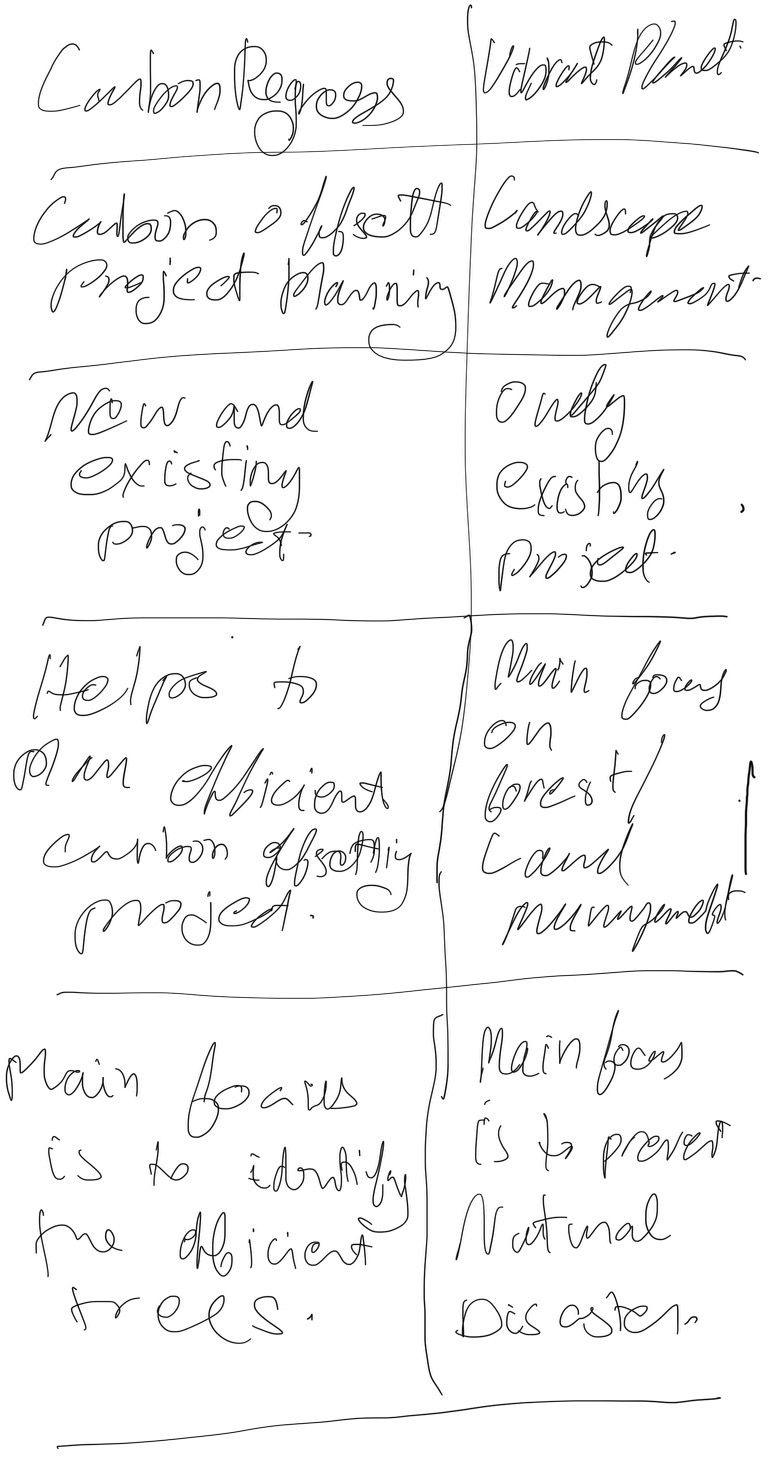 Carbon Regress
Vibrant Planet.
Carbon offsett
Project Planning
Landscape
Management.
New and
existing
project.
Only
existing
project.
Helps to
plan efficient
carbon offsetting
project.
Main focus
on
forest/
Land
management
Main focus
is to identify
the efficient
trees.
Main focus
is to prevent
Natural
Disaster.